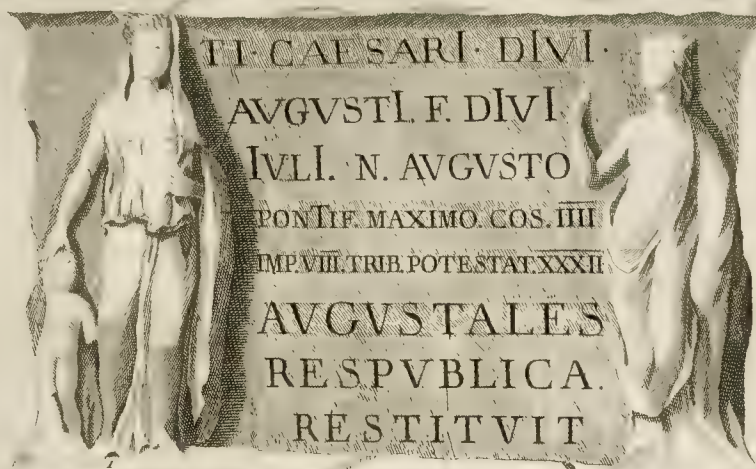 TI · CAESARI · DIVI ·
AVGVSTI. F. DIVI
IVLI. N. AVGVSTO
PONTIF. MAXIMO. COS. IIII
IMP. VIII. TRIB. POTESTAT. XXXII
AVGVSTALES
RESPVBLICA.
RESTITVIT